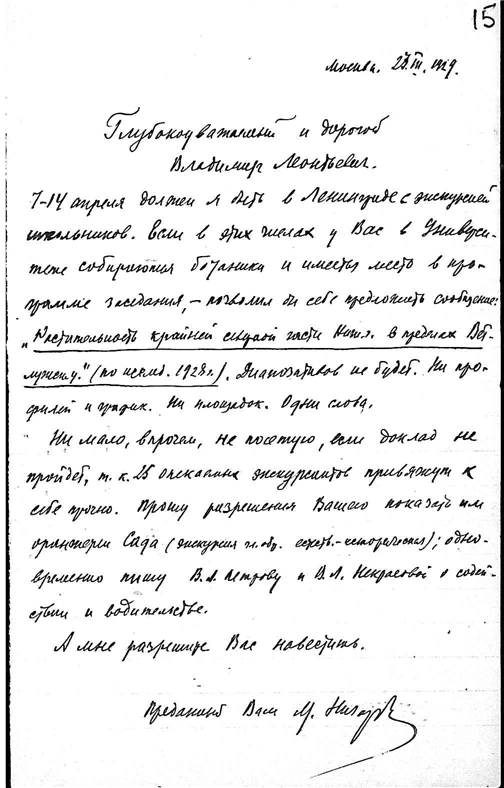 15
Москва. 23.III.1929.
Глубокоуважаемый и дорогой
Владимир Леонтьевич.
7–14 апреля должен я быть в Ленинграде с экскурсией
школьников. Если в этих числах у Вас в Универси-
тете собираются ботаники и имеется место в про-
грамме заседания, – позволил бы себе предложить сообщение:
„Растительность крайней северной части Ниж. г. в пределах Вет-
лужск. у." (по исслед. 1928 г.). Диапозитивов не будет. Ни про-
филей и график. Ни площадок. Одни слова.
Ни мало, впрочем, не посетую, если доклад не
пройдет, т. к. 25 опекаемых экскурсантов привяжут к
себе прочно. Прошу разрешения Вашего показать им
оранжереи Сада (экскурсия гл. обр. естеств.-историческая); одно-
временно пишу В.А. Петрову и В.Л. Некрасовой о содей-
ствии и водительстве.
А мне разрешите Вас навестить.
Преданный Вам М.